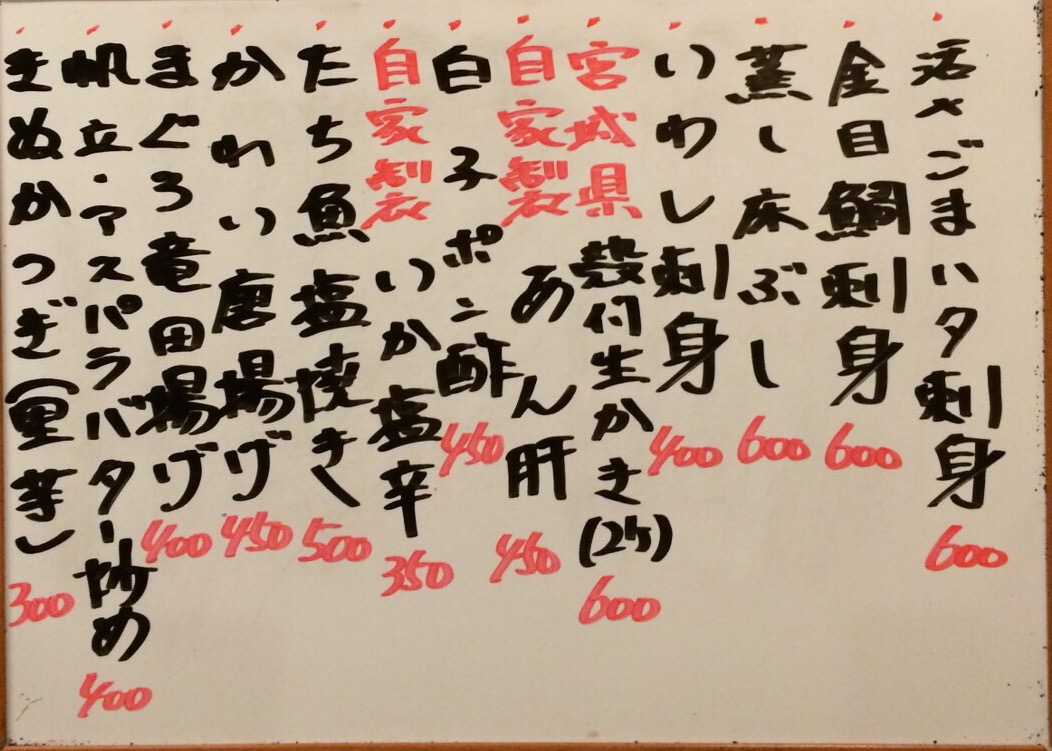 活〆ごまいタ刺身 600
金目鯛刺身 600
蒸し床ぶし 600
いわし刺身 400
宮城県 殻付生かき(2ケ) 600
自家製 あん肝 450
白子ポン酢 450
自家製 いか塩辛 350
たち魚塩焼き 500
かわい唐揚げ 450
まぐろ竜田揚げ 400
帆立・アスパラバター炒め 400
きぬかつぎ(里芋) 300